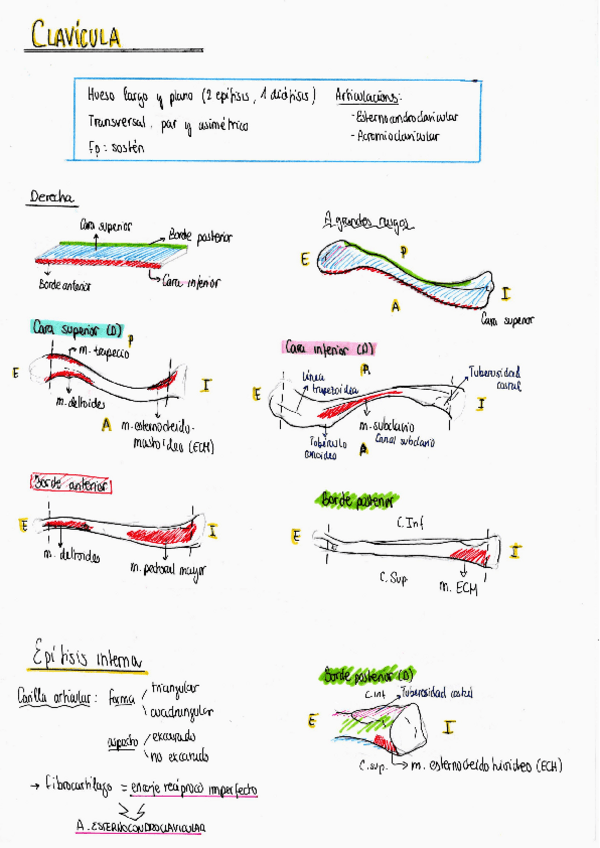 CLAVÍCULA
Hueso largo y plano (2 epífisis, 1 diáfisis)
Transversal, par y asimétrico
Fp: sostén
Articulacions:
- Esternocondroclavicular
- Acromioclavicular
Derecha
Cara superior
Borde posterior
Borde anterior
Cara inferior
A grandes rasgos
E
P
I
A
Cara superior
Cara superior (D)
P
m. trapecio
E
I
m. deltoides
A
m. esternocleido-
mastoideo (ECM)
Cara inferior (D)
P
Línea
trapezoidea
Tuberosidad
costal
E
I
m. subclavio
Canal subclavio
Tubérculo
conoideo
A
Borde anterior
E
I
m. deltoides
m. pectoral mayor
Borde posterior
C. Inf
E
I
C. Sup
m. ECM
Epífisis interna
Carilla articular: forma
triangular
cuadrangular
aspecto
excavado
no excavado
→ Fibrocartílago = encaje recíproco imperfecto
A. ESTERNOCONDROCLAVICULAR
Borde posterior (D)
C. inf
Tuberosidad costal
E
I
C. sup.
m. esternocleido hioideo (ECH)